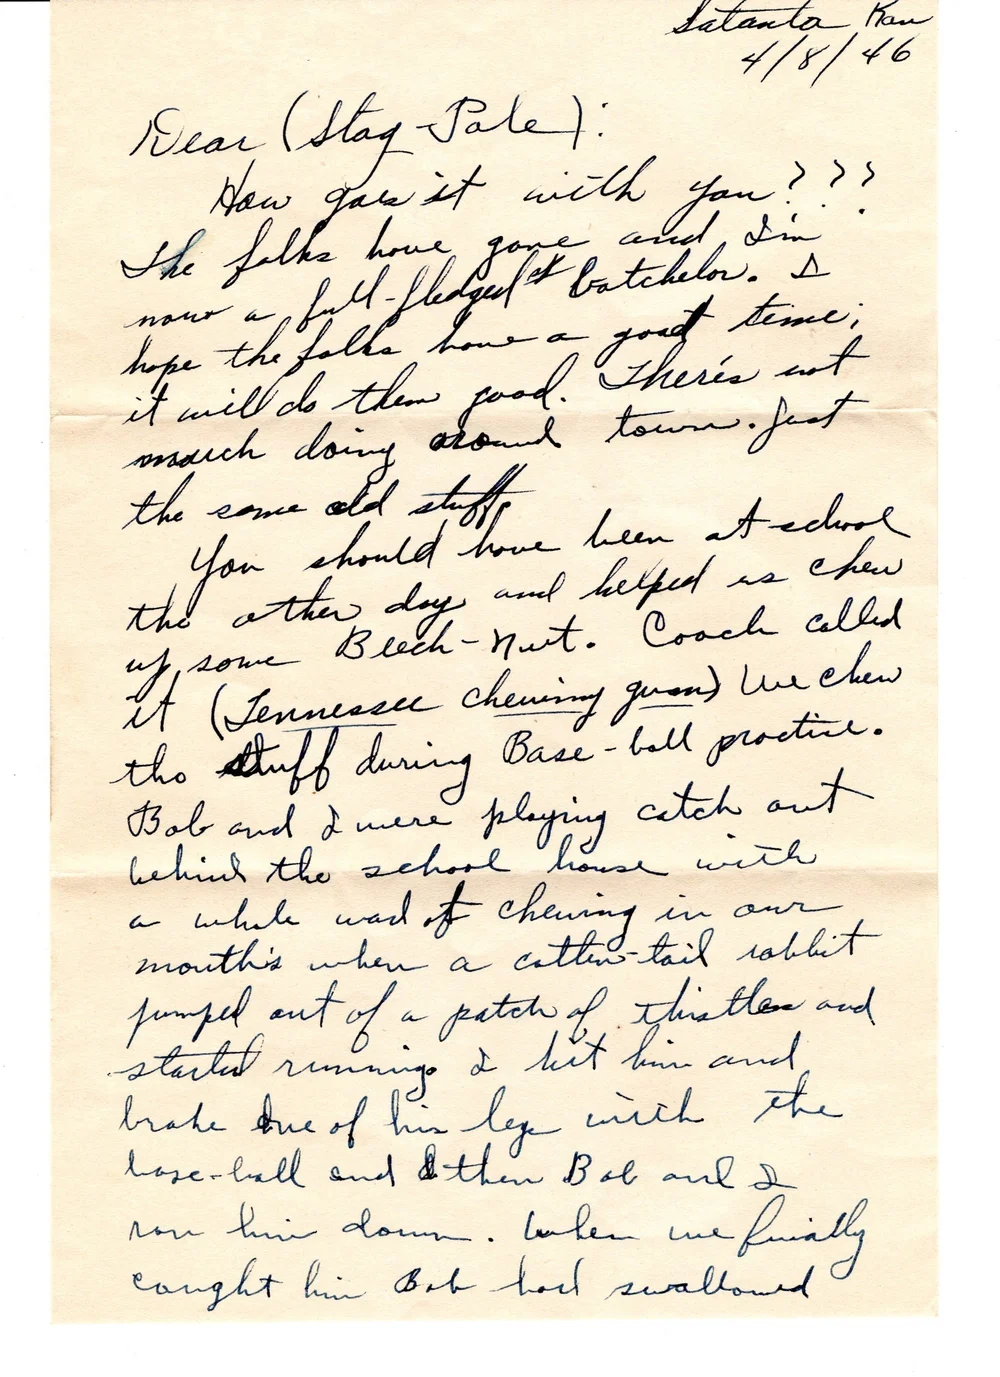 Satanta Kan
4/8/46
Dear (Stag-Pole):
How goes it with you???
The folks have gone and I'm
now a full-fledged batchelor. I
hope the folks have a good time;
it will do them good. There's not
much doing around town. Just
the same old stuff.
You should have been at school
the other day and helped us chew
up some Beech-Nut. Coach called
it (Tennessee chewing gum) We chew
the stuff during Base-ball practice.
Bob and I were playing catch out
behind the school house with
a whole wad of chewing in our
mouth's when a cotten-tail rabbit
jumped out of a patch of thistles and
started running. I hit him and
brake one of his legs with the
base-ball and then Bob and I
ran him down. When we finially
caught him Bob had swallowed